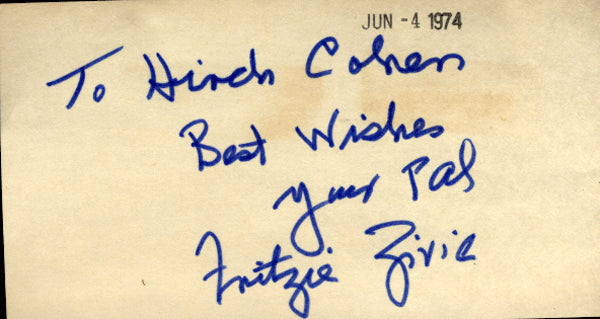 JUN -4 1974
To Hirch Cohen
Best Wishes
Your Pal
Fritzie Zivic